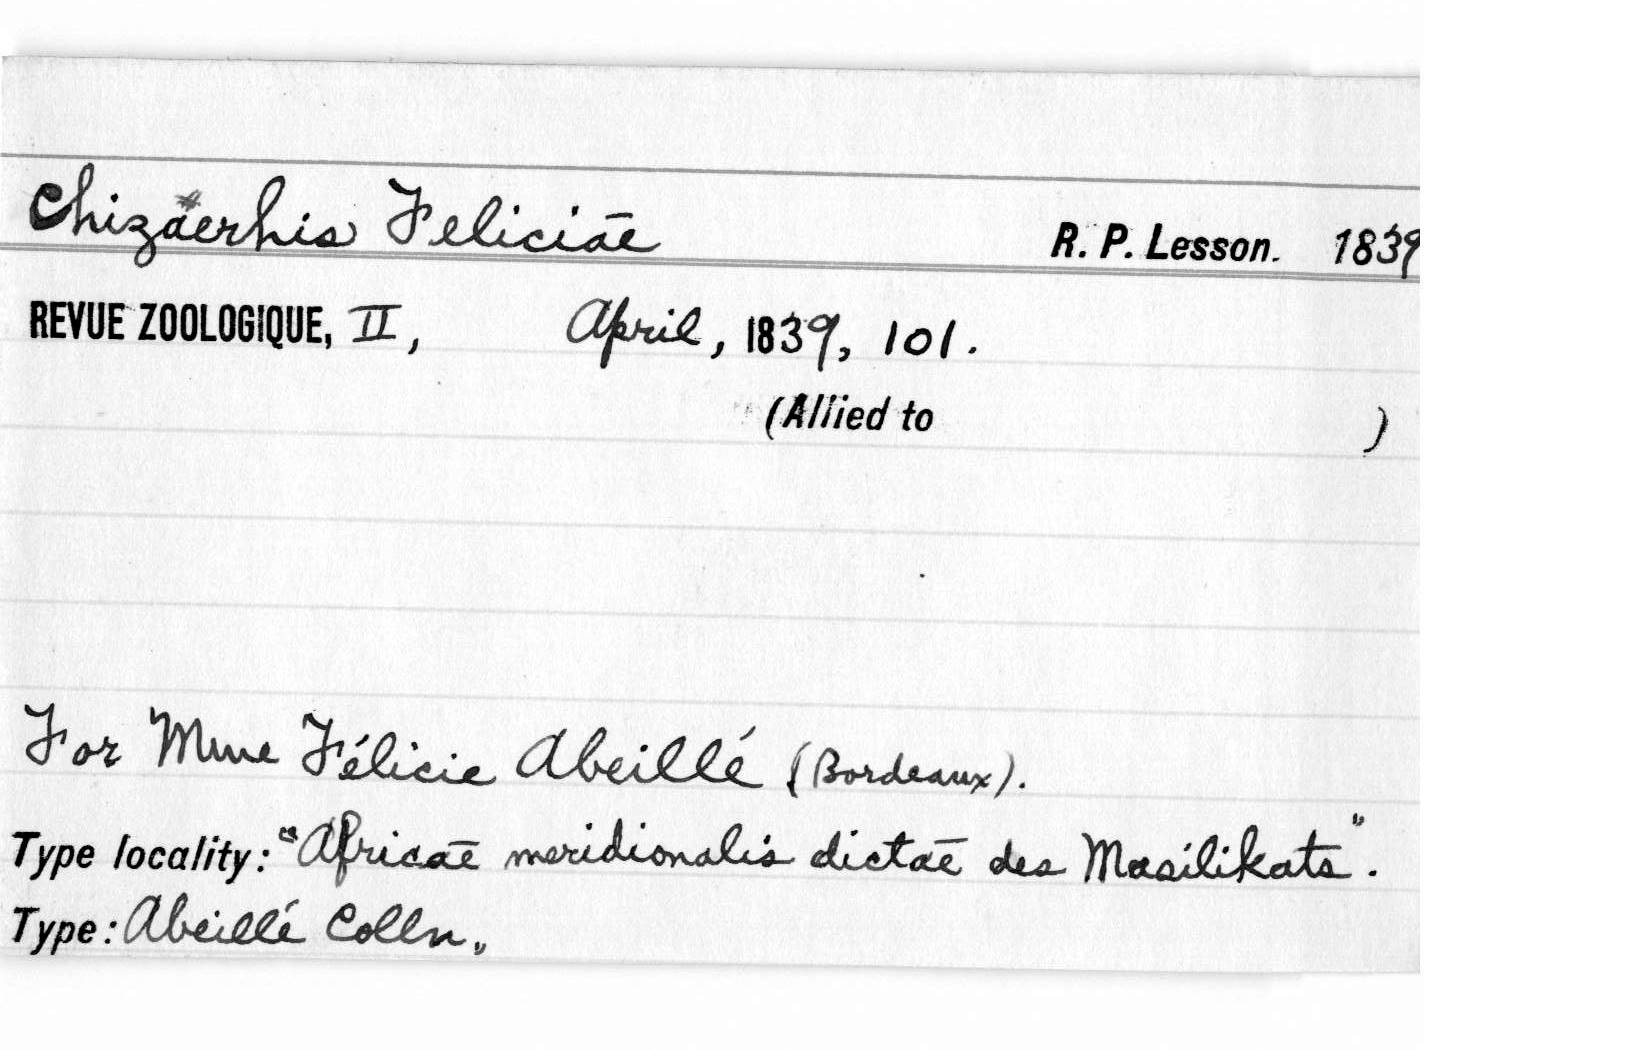 Chizaerhis Feliciae R. P. Lesson. 1839
REVUE ZOOLOGIQUE, II, April, 1839, 101.
(Allied to )
For Mme Félicie Abeillé (Bordeaux).
Type locality: "Africae meridionalis dictae des Masilikats".
Type: Abeillé Colln.